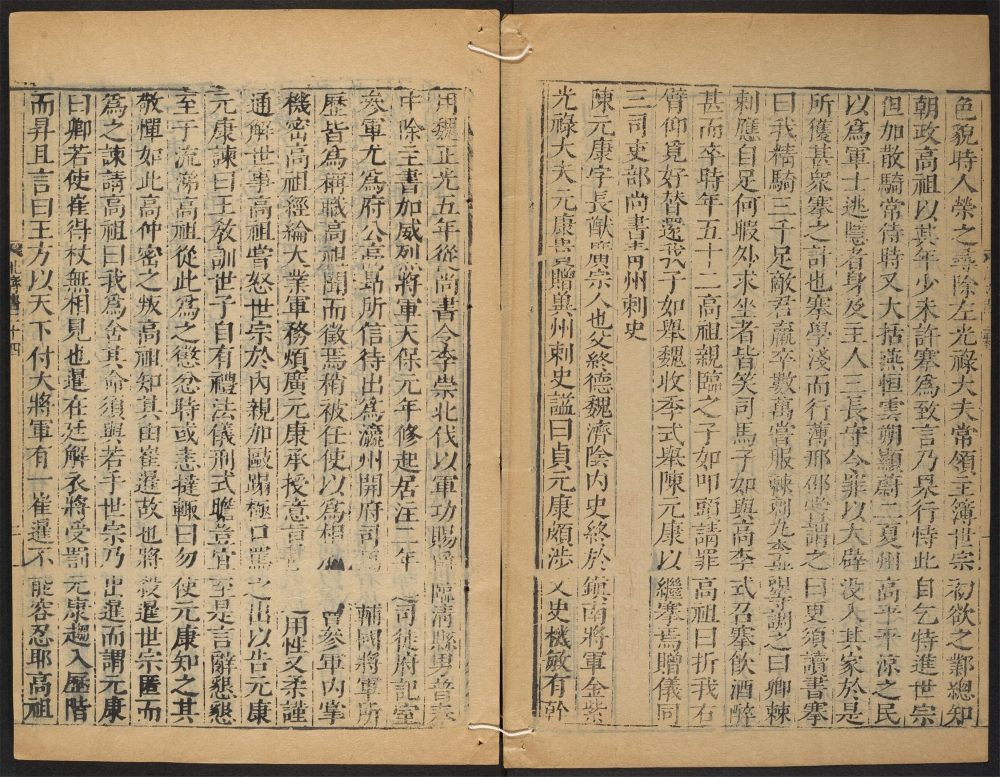 色貌時人榮之尋除左光祿大夫常領主簿世宗初欲之鄴總知
朝政高祖以其年少未許搴為致言乃果行恃此自乞特進世宗
但加散騎常侍時又大括燕恒雲朔顯蔚二夏州高平平涼之民
以為軍士逃隱者身及主人三長守令罪以大辟没入其家於是
所獲甚衆搴之計也搴學淺而行薄邢邵嘗謂之曰更須讀書搴
曰我精騎三千足敵君羸卒數萬嘗服棘刺丸李諧等調之曰卿棘
刺應自足何假外求坐者皆笑司馬子如與高季式召搴飲酒醉
甚而卒時年五十二高祖親臨之子如叩頭請罪高祖曰折我右
臂仰覓好替還我子如舉魏收季式舉陳元康以繼搴焉贈儀同
三司吏部尚書青州刺史
陳元康字長猷廣宗人也父終德魏濟陰内史終於鎮南將軍金紫
光祿大夫元康貴贈冀州刺史謚曰貞元康頗涉文史機敏有幹
用魏正光五年從尚書令李崇北伐以軍功賜爵臨清縣男普泰
中除主書加威烈將軍天保元年修起居注二年遷司徒府記室
參軍尤為府公高昂所信待出為瀛州開府司馬輔國將軍所
歷皆為稱職高祖聞而徵焉稍被任使以為相曹參軍内掌
機密高祖經綸大業軍務煩廣元康承授意旨用性又柔謹
通解世事高祖嘗怒世宗於内親加毆蹋極口罵之出以告元康
元康諫曰王教訓世子自有禮法儀刑式瞻豈宜至是言辭懇懇
至于流涕高祖從此為之懲忿時或恚撻輒曰勿使元康知之其
敬憚如此高仲密之叛高祖知其由崔暹故也將殺暹世宗匿而
為之諫請高祖曰我為舍其命須與苦手世宗乃出暹而謂元康
曰卿若使崔得杖無相見也暹在廷解衣將受罰元康趨入歷階
而昇且言曰王方以天下付大將軍有一崔暹不能容忍耶高祖
北齊傳十四